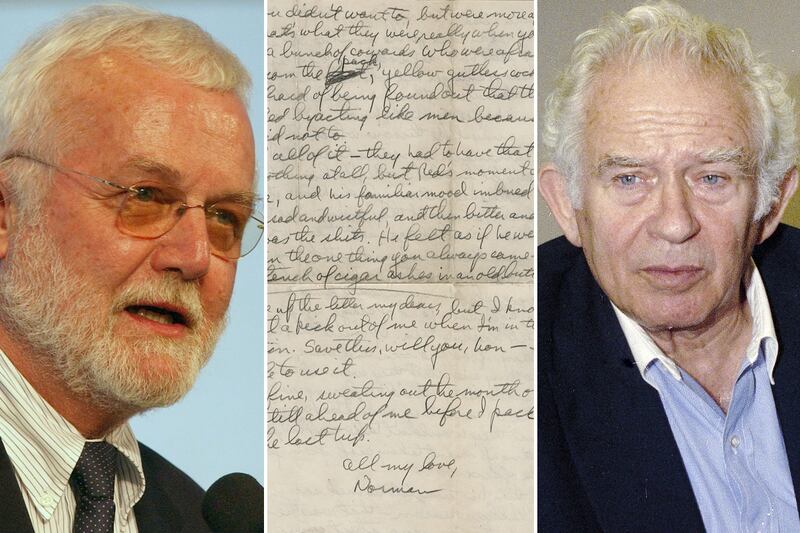 u didn't want to, but were more a
at's what they were really when yo
a bunch of cowards who were afra
from the pack, yellow gutless cock
fraid of being found out that th
ed by acting like men becaus
id not to
all of it — they had to have that
othing at all, but Red's moment o
, and his familiar mood imbued
sad and wistful, and then bitter and
was the shits. He felt as if he we
n the one thing you always came
tench of cigar ashes in an old butt
of the letter my dear, but I know
t a kick out of me when I'm in t
ion. Save this, will you, hon —
le to use it.
fine, sweating out the month o
still ahead of me before I pack
he last trip.
all my love,
Norman